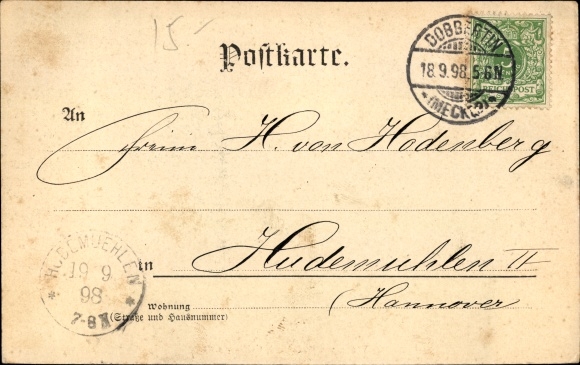 15-
Postkarte.
DOBBERTIN
18.9.98.5-6N.
(MECKLB)
5
REICHSPOST
An
Freiin H. von Hodenberg
in Hudemühlen II
(Hannover)
Wohnung
(Straße und Hausnummer)
HUDEMUEHLEN
19 9
98
7-8N